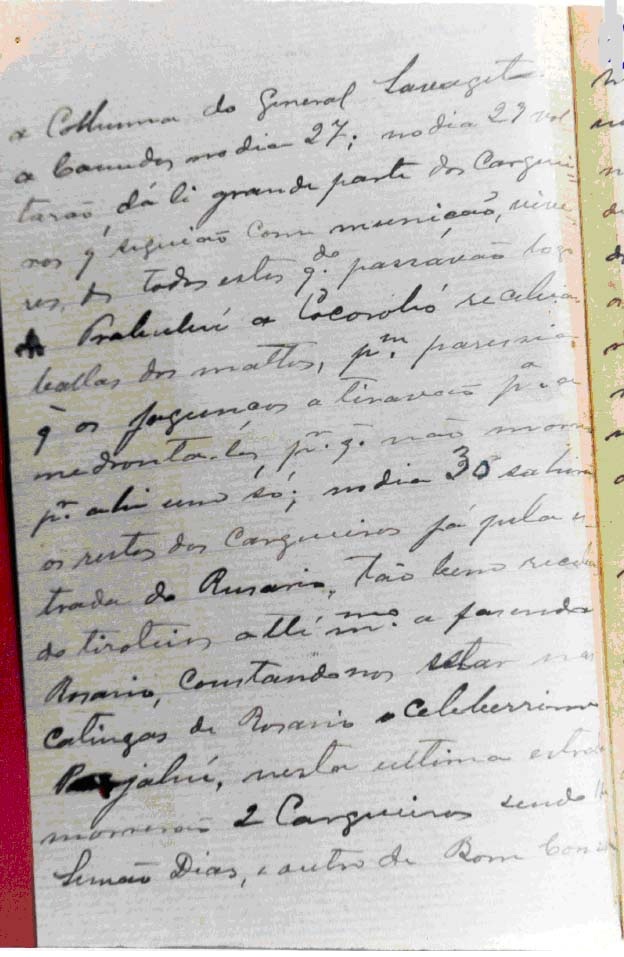 a Collumna do General Savaget
a Canudos no dia 27; no dia 29 vol
tarão, dá li grande parte dos Carguei-
ros q' seguião com munição, vive
res, & todos estes q.do passavão logo
Trabubú a Cocorobó recebião
ballas dos mattos, p.m paressia
q̃ os jagunços atiravão p.a a
medronta-los, p.r q. não morreu
p.r ahi um só; no dia 30 sahirão
os restos dos Cargueiros já pela es-
trada do Rusario, tão bem receben
do tiroteios atté m.mo a fazenda
Rosario, Constando nos estar nas
Catingas de Rosario o Celeberrimo
Pajahú, nesta ultima estrada
morrerão 2 Cargueiros sendo
Simão Dias, e outro de Bom Conse